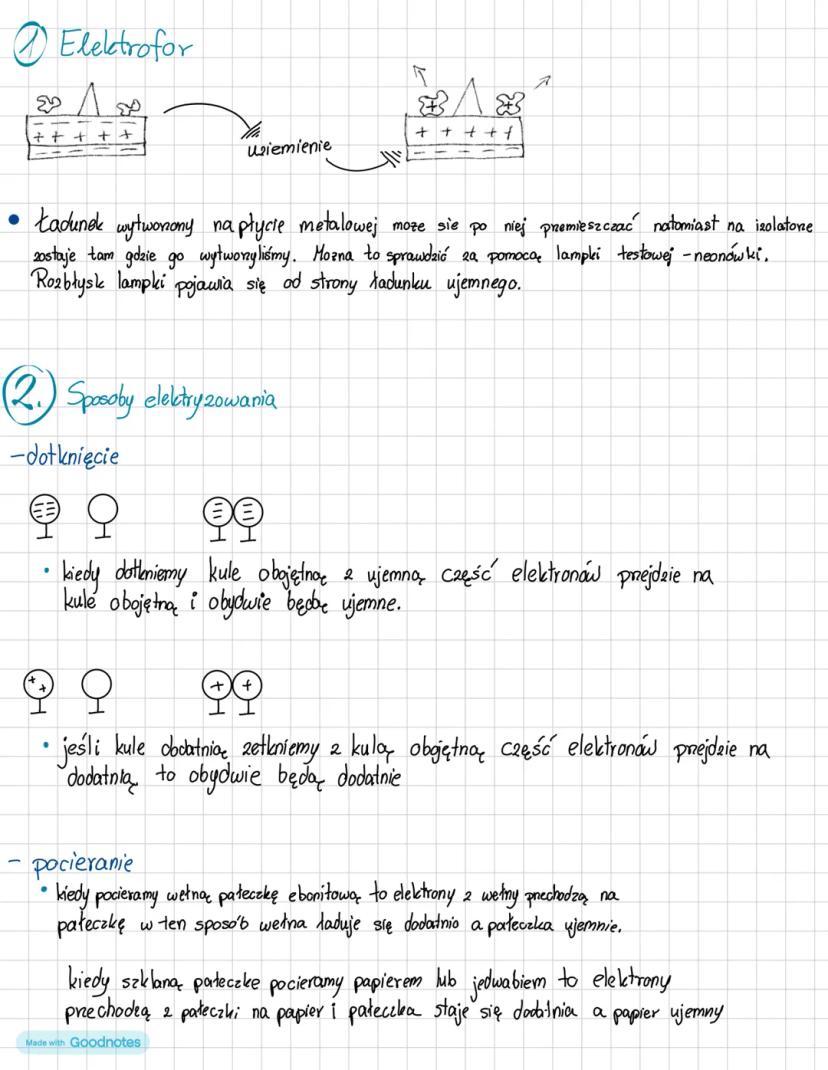 1 Elektrofor
uziemienie
• Ładunek wytworzony na płycie metalowej może sie po niej przemieszczać natomiast na izolatorze
zostaje tam gdzie go wytworzyliśmy. Mozna to sprawdzić za pomocą lampki testowej - neonówki.
Rozbłysk lampki pojawia się od strony ładunku ujemnego.
2. Sposoby elektryzowania
- dotknięcie
• kiedy dotkniemy kule obojętną z ujemną część elektronów przejdzie na
kule obojętną i obydwie będą ujemne.
• jeśli kule dodatnią zetkniemy z kulą obojętną część elektronów przejdzie na
dodatnią to obydwie będą dodatnie
- pocieranie
• kiedy pocieramy wełną pałeczkę ebonitową to elektrony z wełny przechodzą na
pałeczkę w ten sposób wełna ładuje się dodatnio a pałeczka ujemnie.
kiedy szklaną pałeczke pocieramy papierem lub jedwabiem to elektrony
przechodzą z pałeczki na papier i pałeczka staje się dodatnia a papier ujemny
Made with Goodnotes